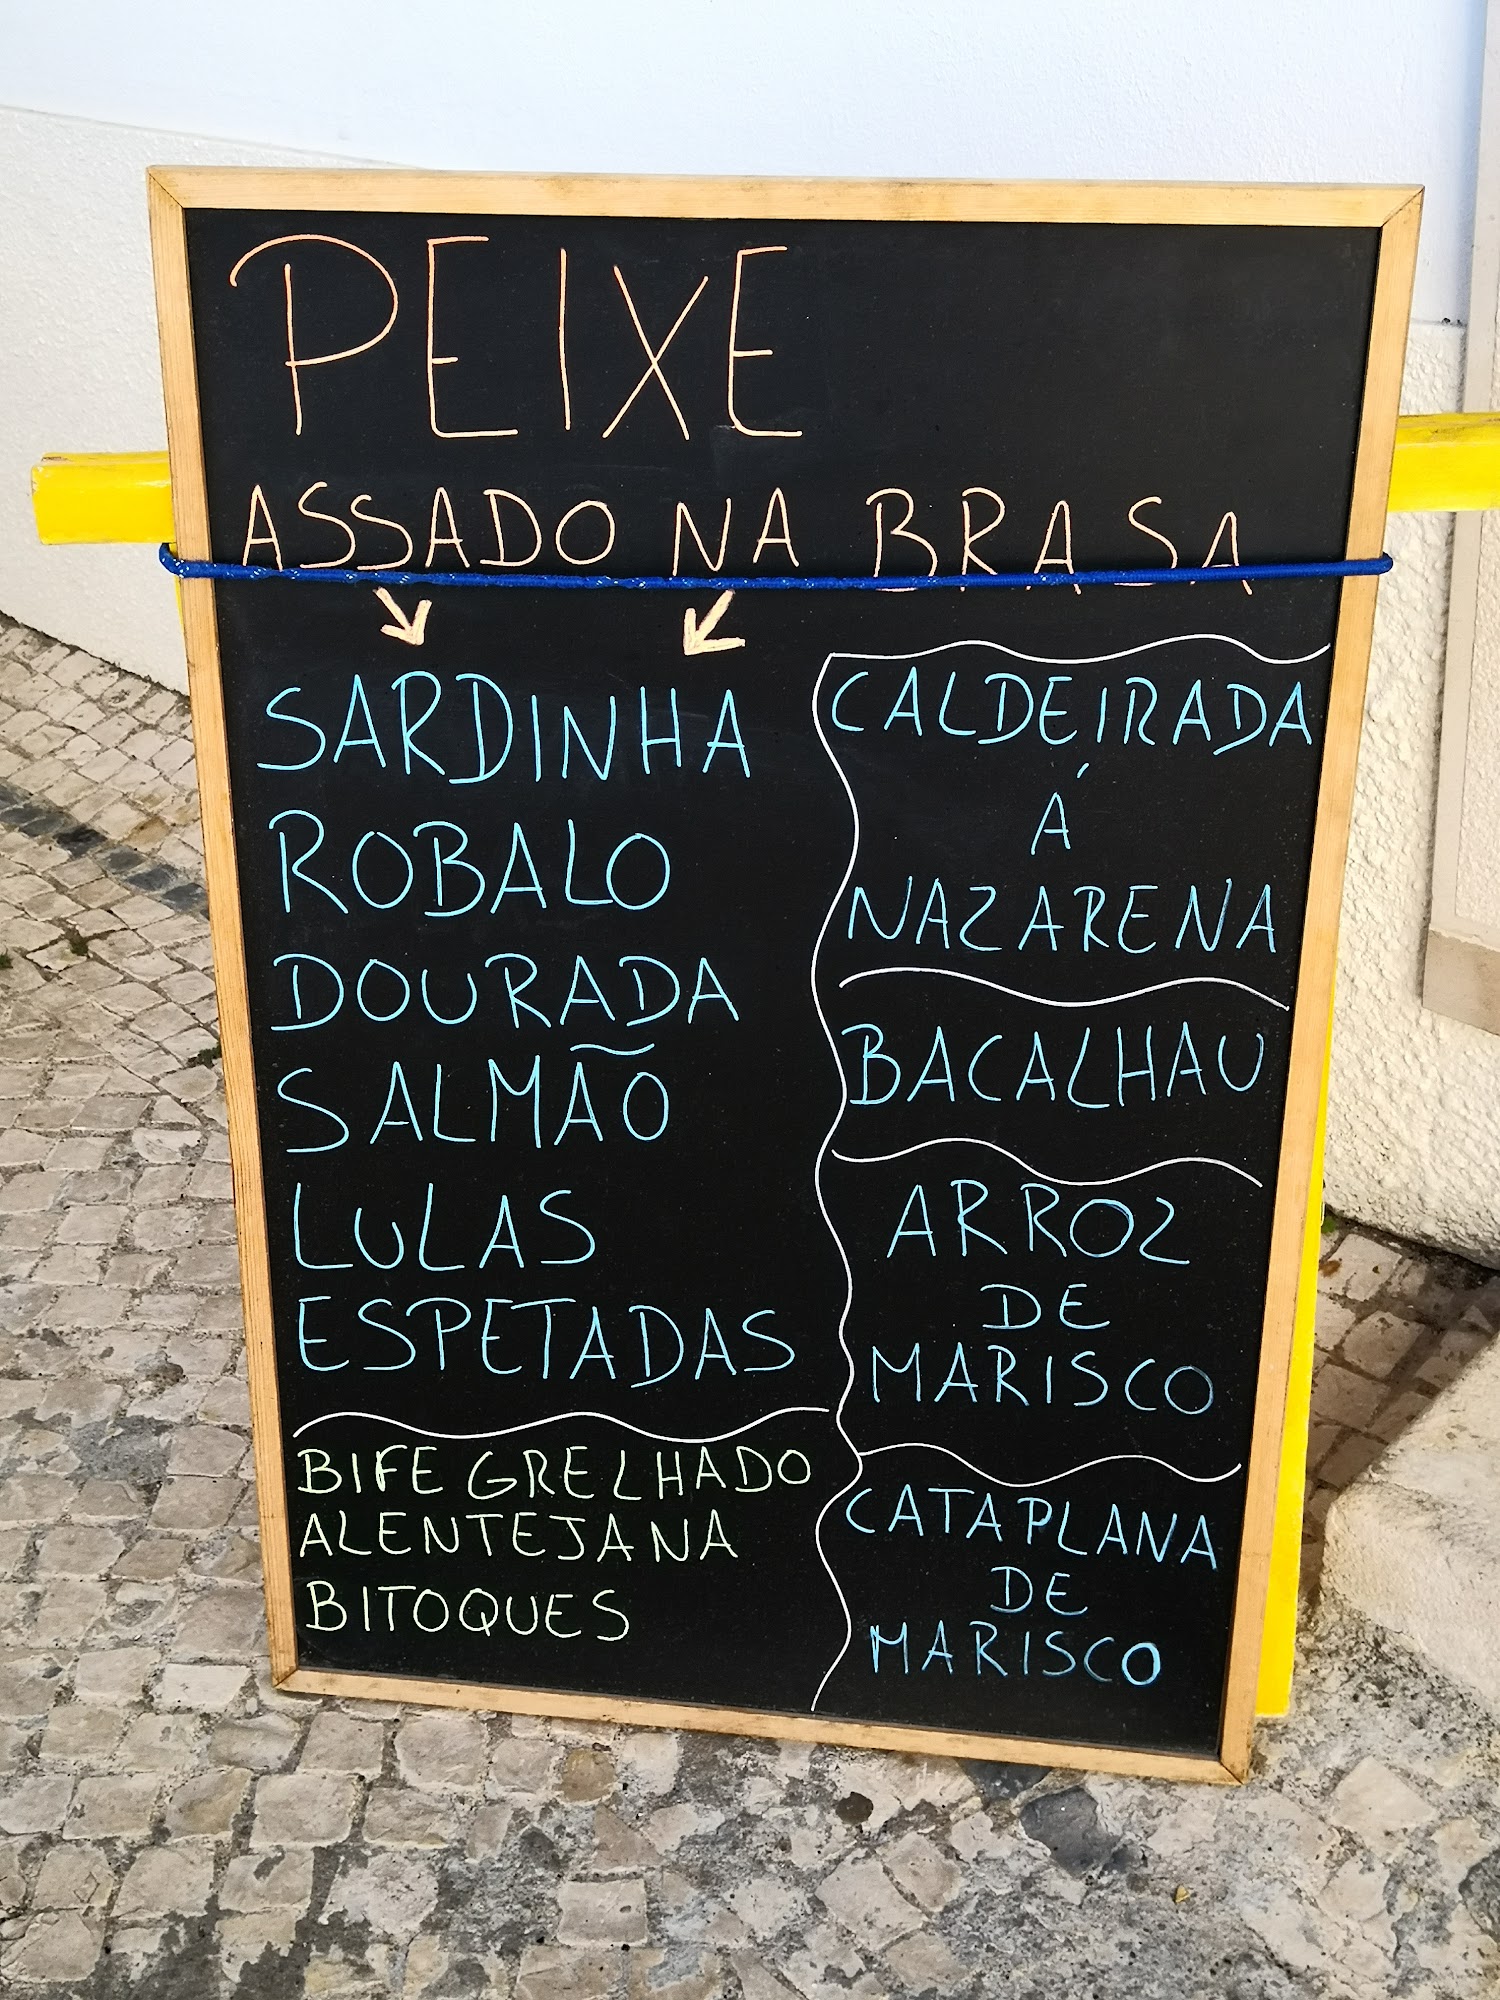 PEIXE
ASSADO NA BRASA
SARDINHA
ROBALO
DOURADA
SALMÃO
LULAS
ESPETADAS
BIFE GRELHADO
ALENTEJANA
BITOQUES
CALDEIRADA
Á
NAZARENA
BACALHAU
ARROZ
DE
MARISCO
CATAPLANA
DE
MARISCO